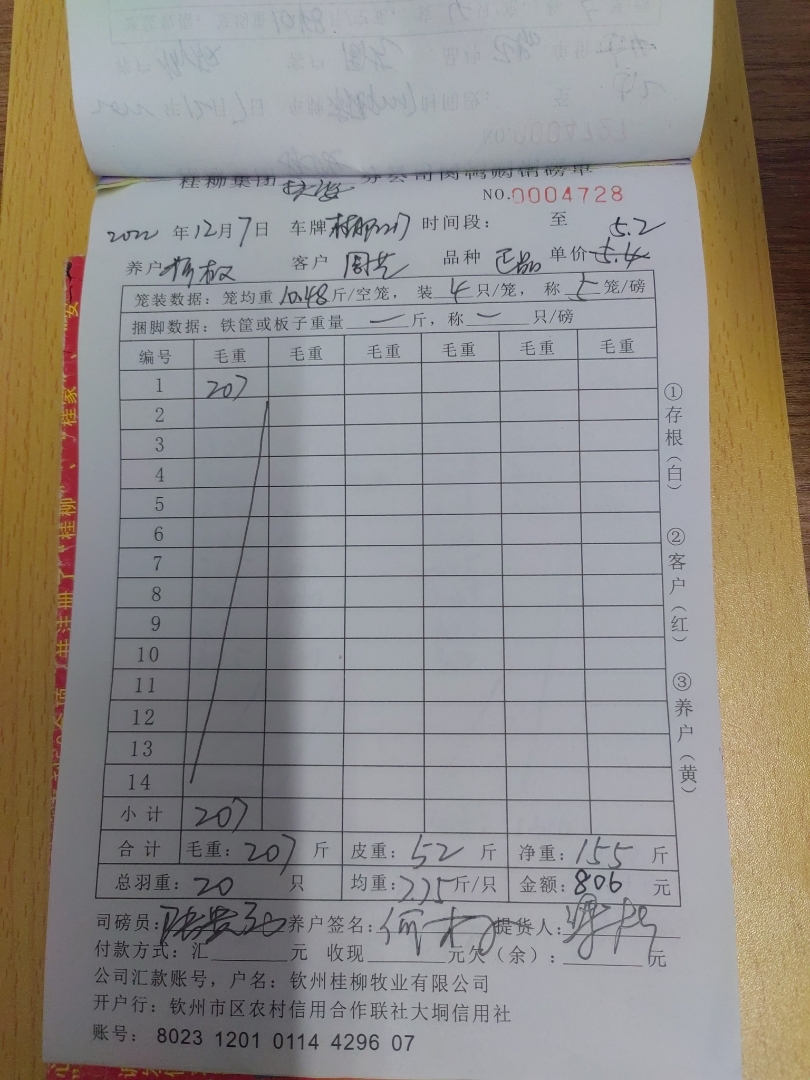 桂柳集团 分公司肉鸭购销磅单
NO.0004728
2022 年 12 月 7 日 车牌 时间段: 至 5.2
养户 客户 品种 正品 单价 5.4
笼装数据: 笼均重 10.48 斤/空笼, 装 4 只/笼, 称 5 笼/磅
捆脚数据: 铁筐或板子重量 一 斤, 称 一 只/磅
编号 毛重 毛重 毛重 毛重 毛重 毛重
1 207
2
3
4
5
6
7
8
9
10
11
12
13
14
小计 207
合计 毛重: 207 斤 皮重: 52 斤 净重: 155 斤
总羽重: 20 只 均重: 7.75 斤/只 金额: 806 元
司磅员: 养户签名: 提货人:
付款方式: 汇 元 收现 元欠(余): 元
公司汇款账号, 户名: 钦州桂柳牧业有限公司
开户行: 钦州市区农村信用合作联社大垌信用社
账号: 8023 1201 0114 4296 07
①存根(白) ②客户(红) ③养户(黄)